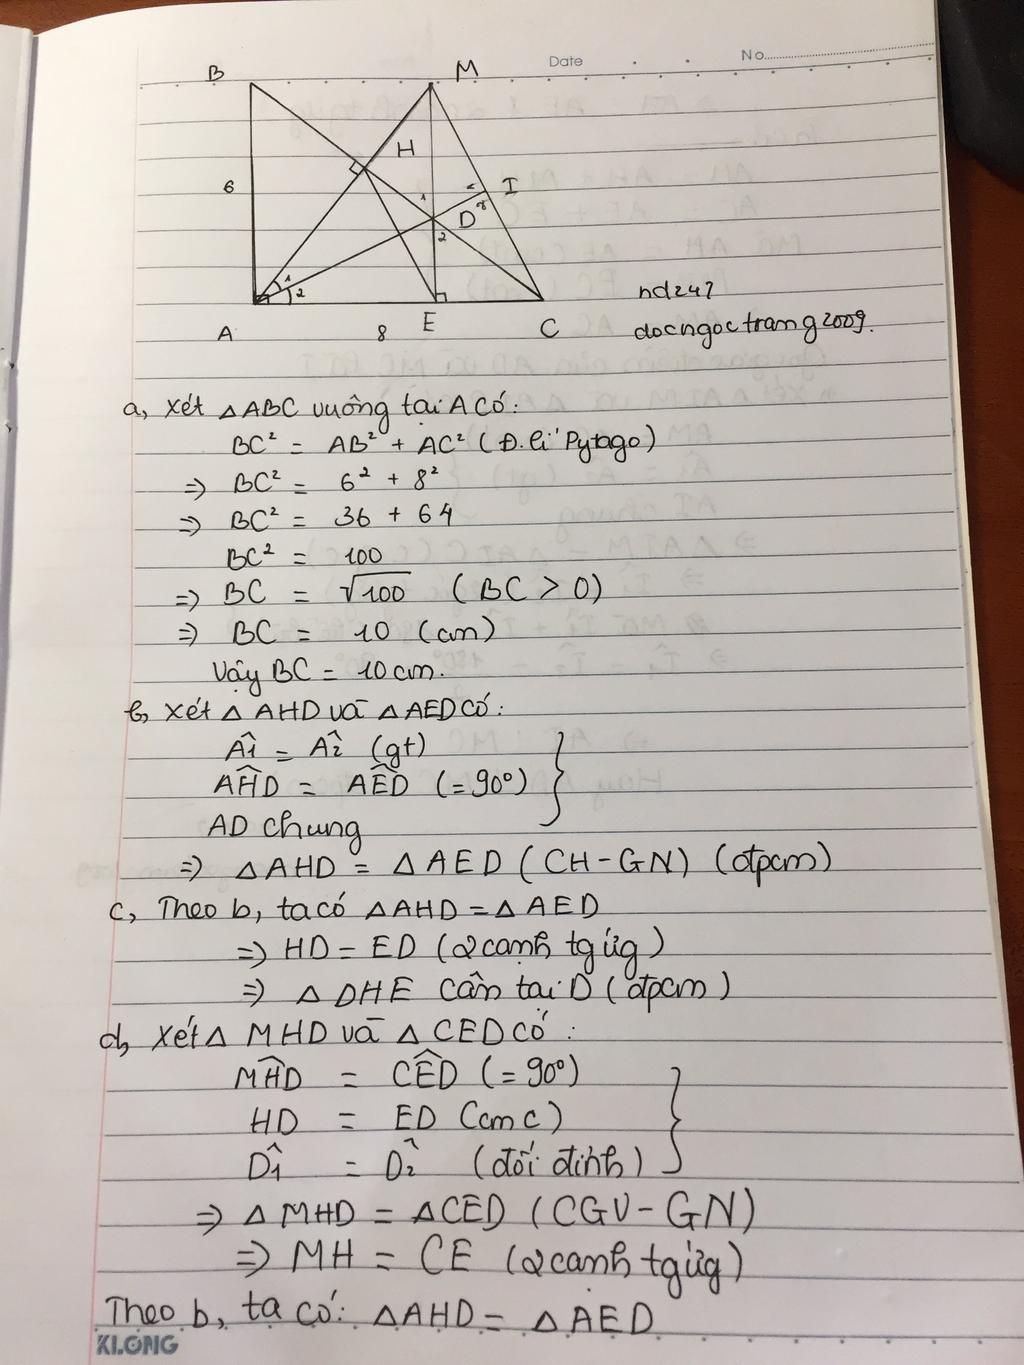 Date No
B M
H
6 1 2 I
D 1
2
1
2
A 8 E C
nd247
docngoctrang2009.
a, Xét △ABC vuông tại A có:
BC² = AB² + AC² (Đ.lí Pytago)
=> BC² = 6² + 8²
=> BC² = 36 + 64
BC² = 100
=> BC = √100 (BC > 0)
=> BC = 10 (cm)
Vậy BC = 10cm.
b, Xét △AHD và △AED có:
Â1 = Â2 (gt)
AĤD = AÊD (=90°)
AD chung
=> △AHD = △AED (CH-GN) (đpcm)
c, Theo b, ta có △AHD = △AED
=> HD = ED (2 cạnh tg ứg)
=> △DHE cân tại D (đpcm)
d, Xét △MHD và △CED có:
MĤD = CÊD (=90°)
HD = ED (cm c)
D̂1 = D̂2 (đối đỉnh)
=> △MHD = △CED (CGV-GN)
=> MH = CE (2 cạnh tg ứg)
Theo b, ta có: △AHD = △AED
KLONG